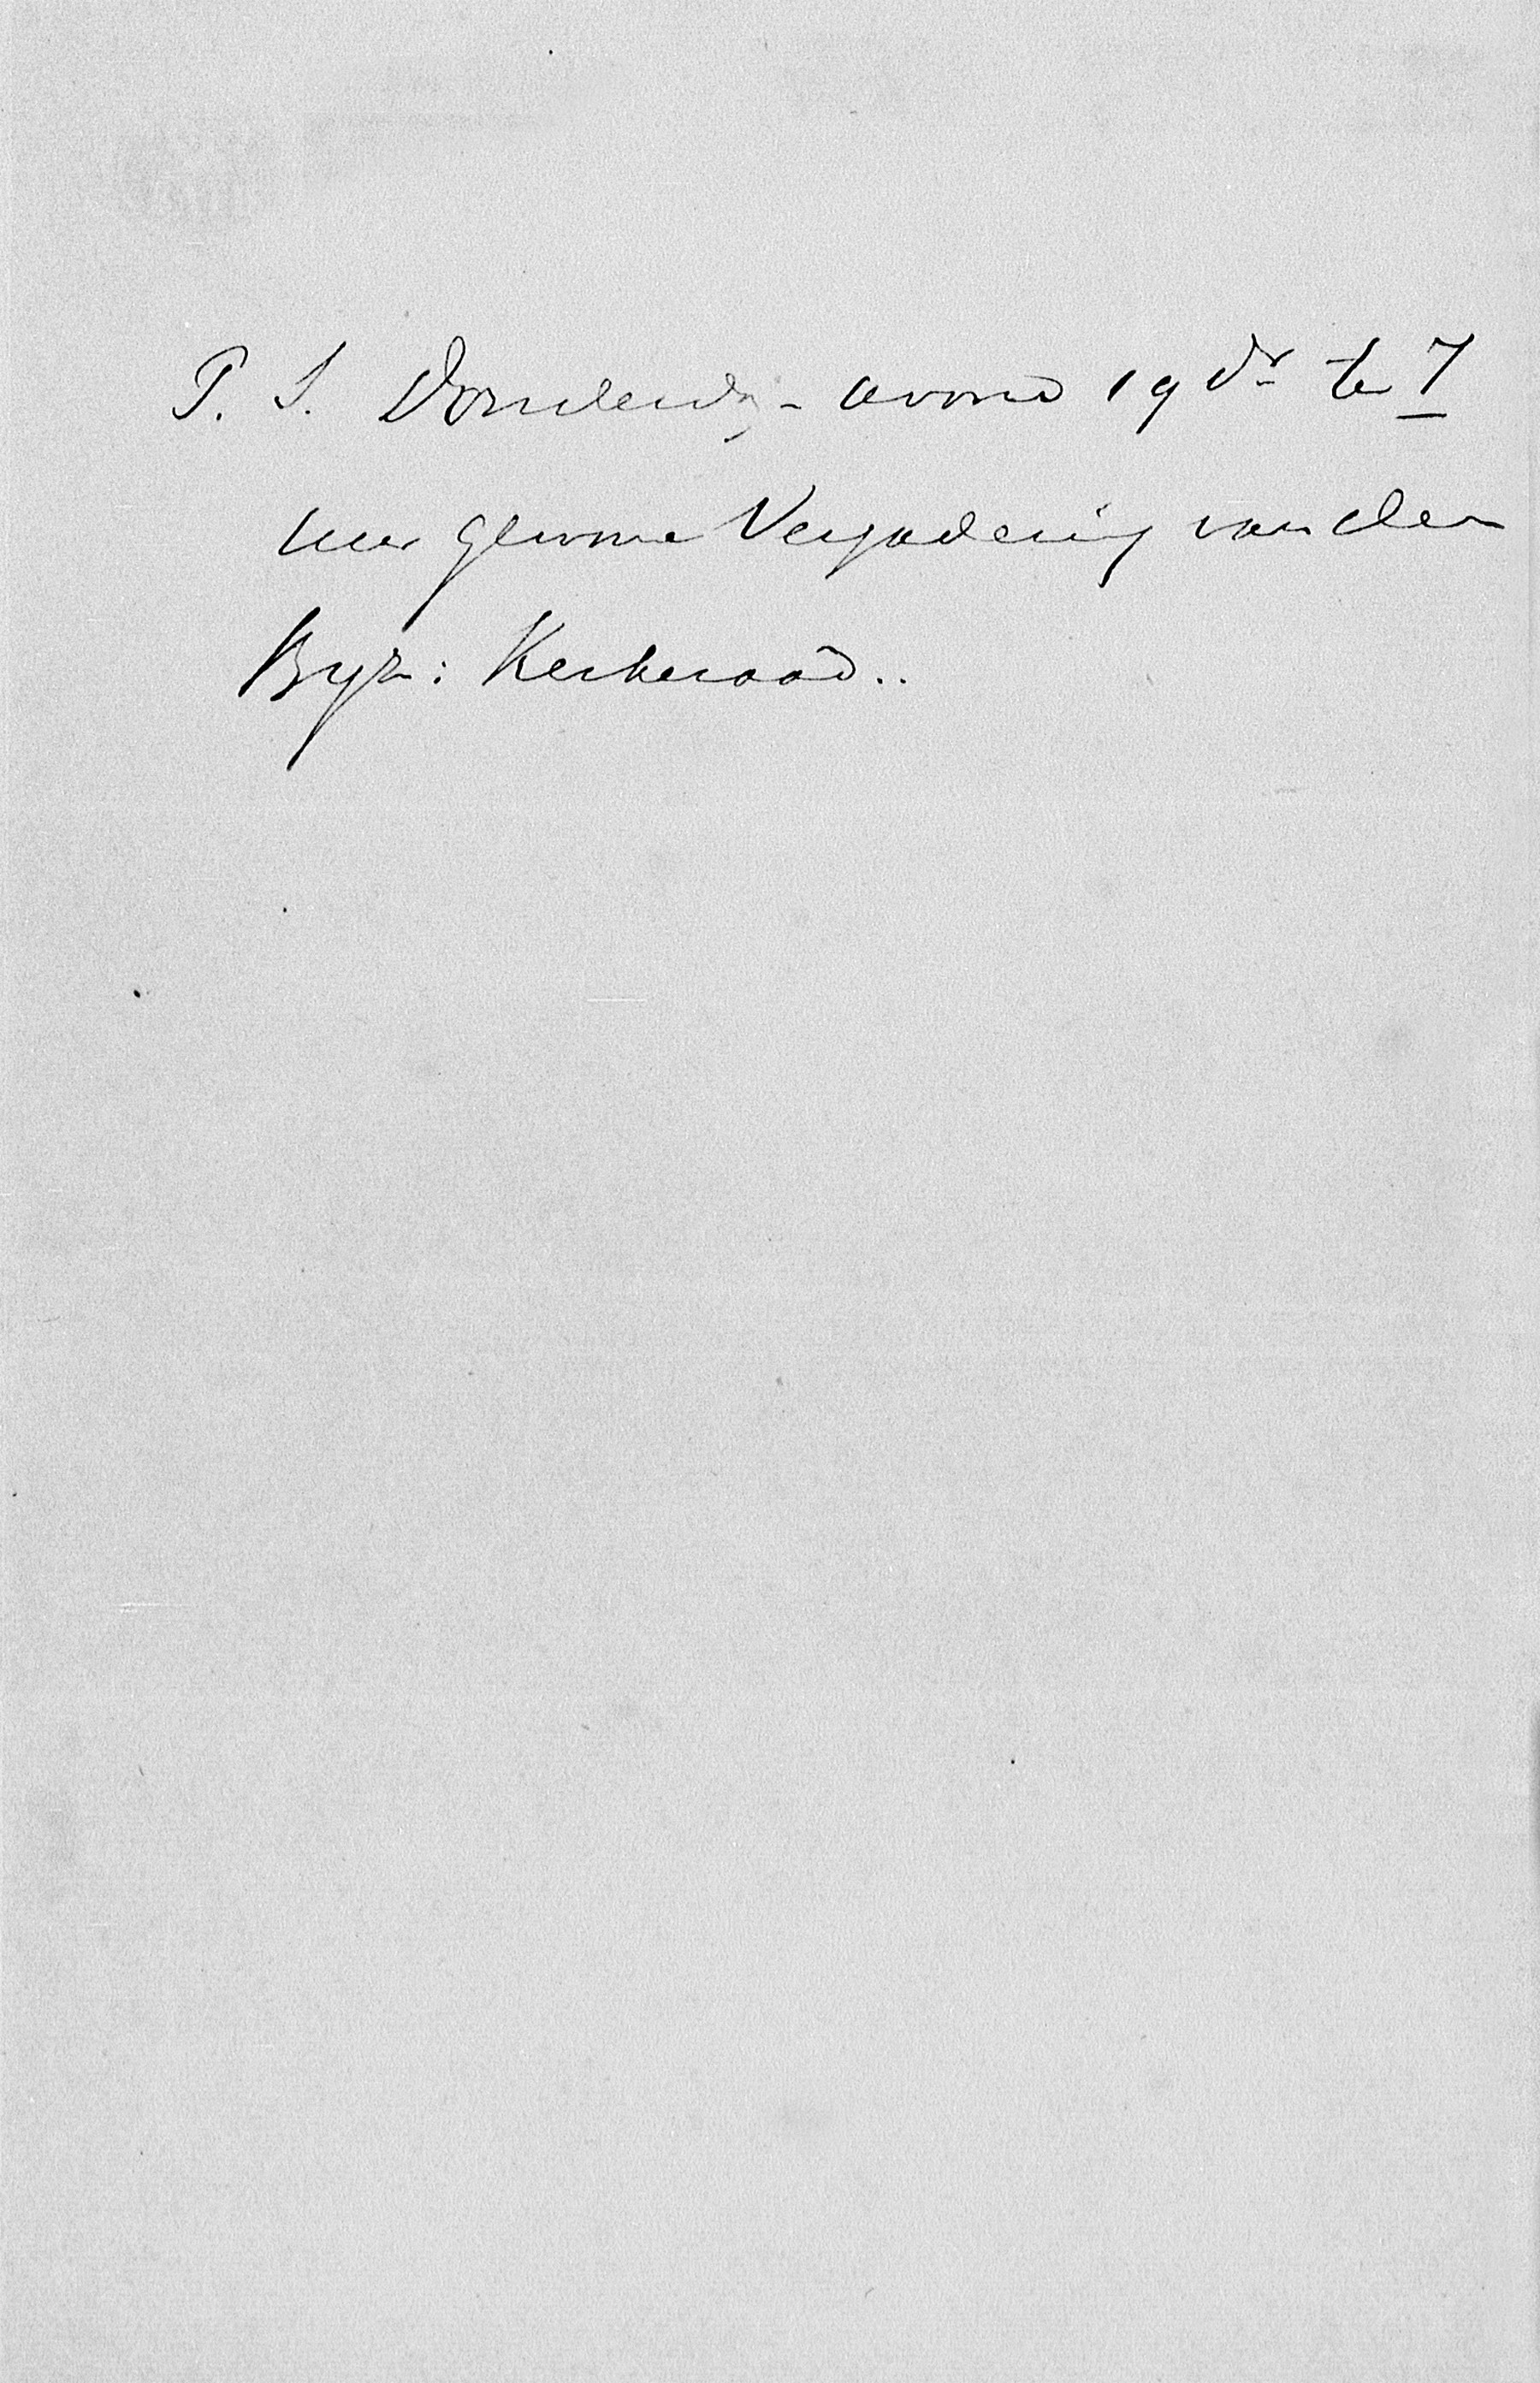 P. S. Donderdag-avond 19 dr te 7
uur gewone Vergadering van den
Byz: Kerkeraad..